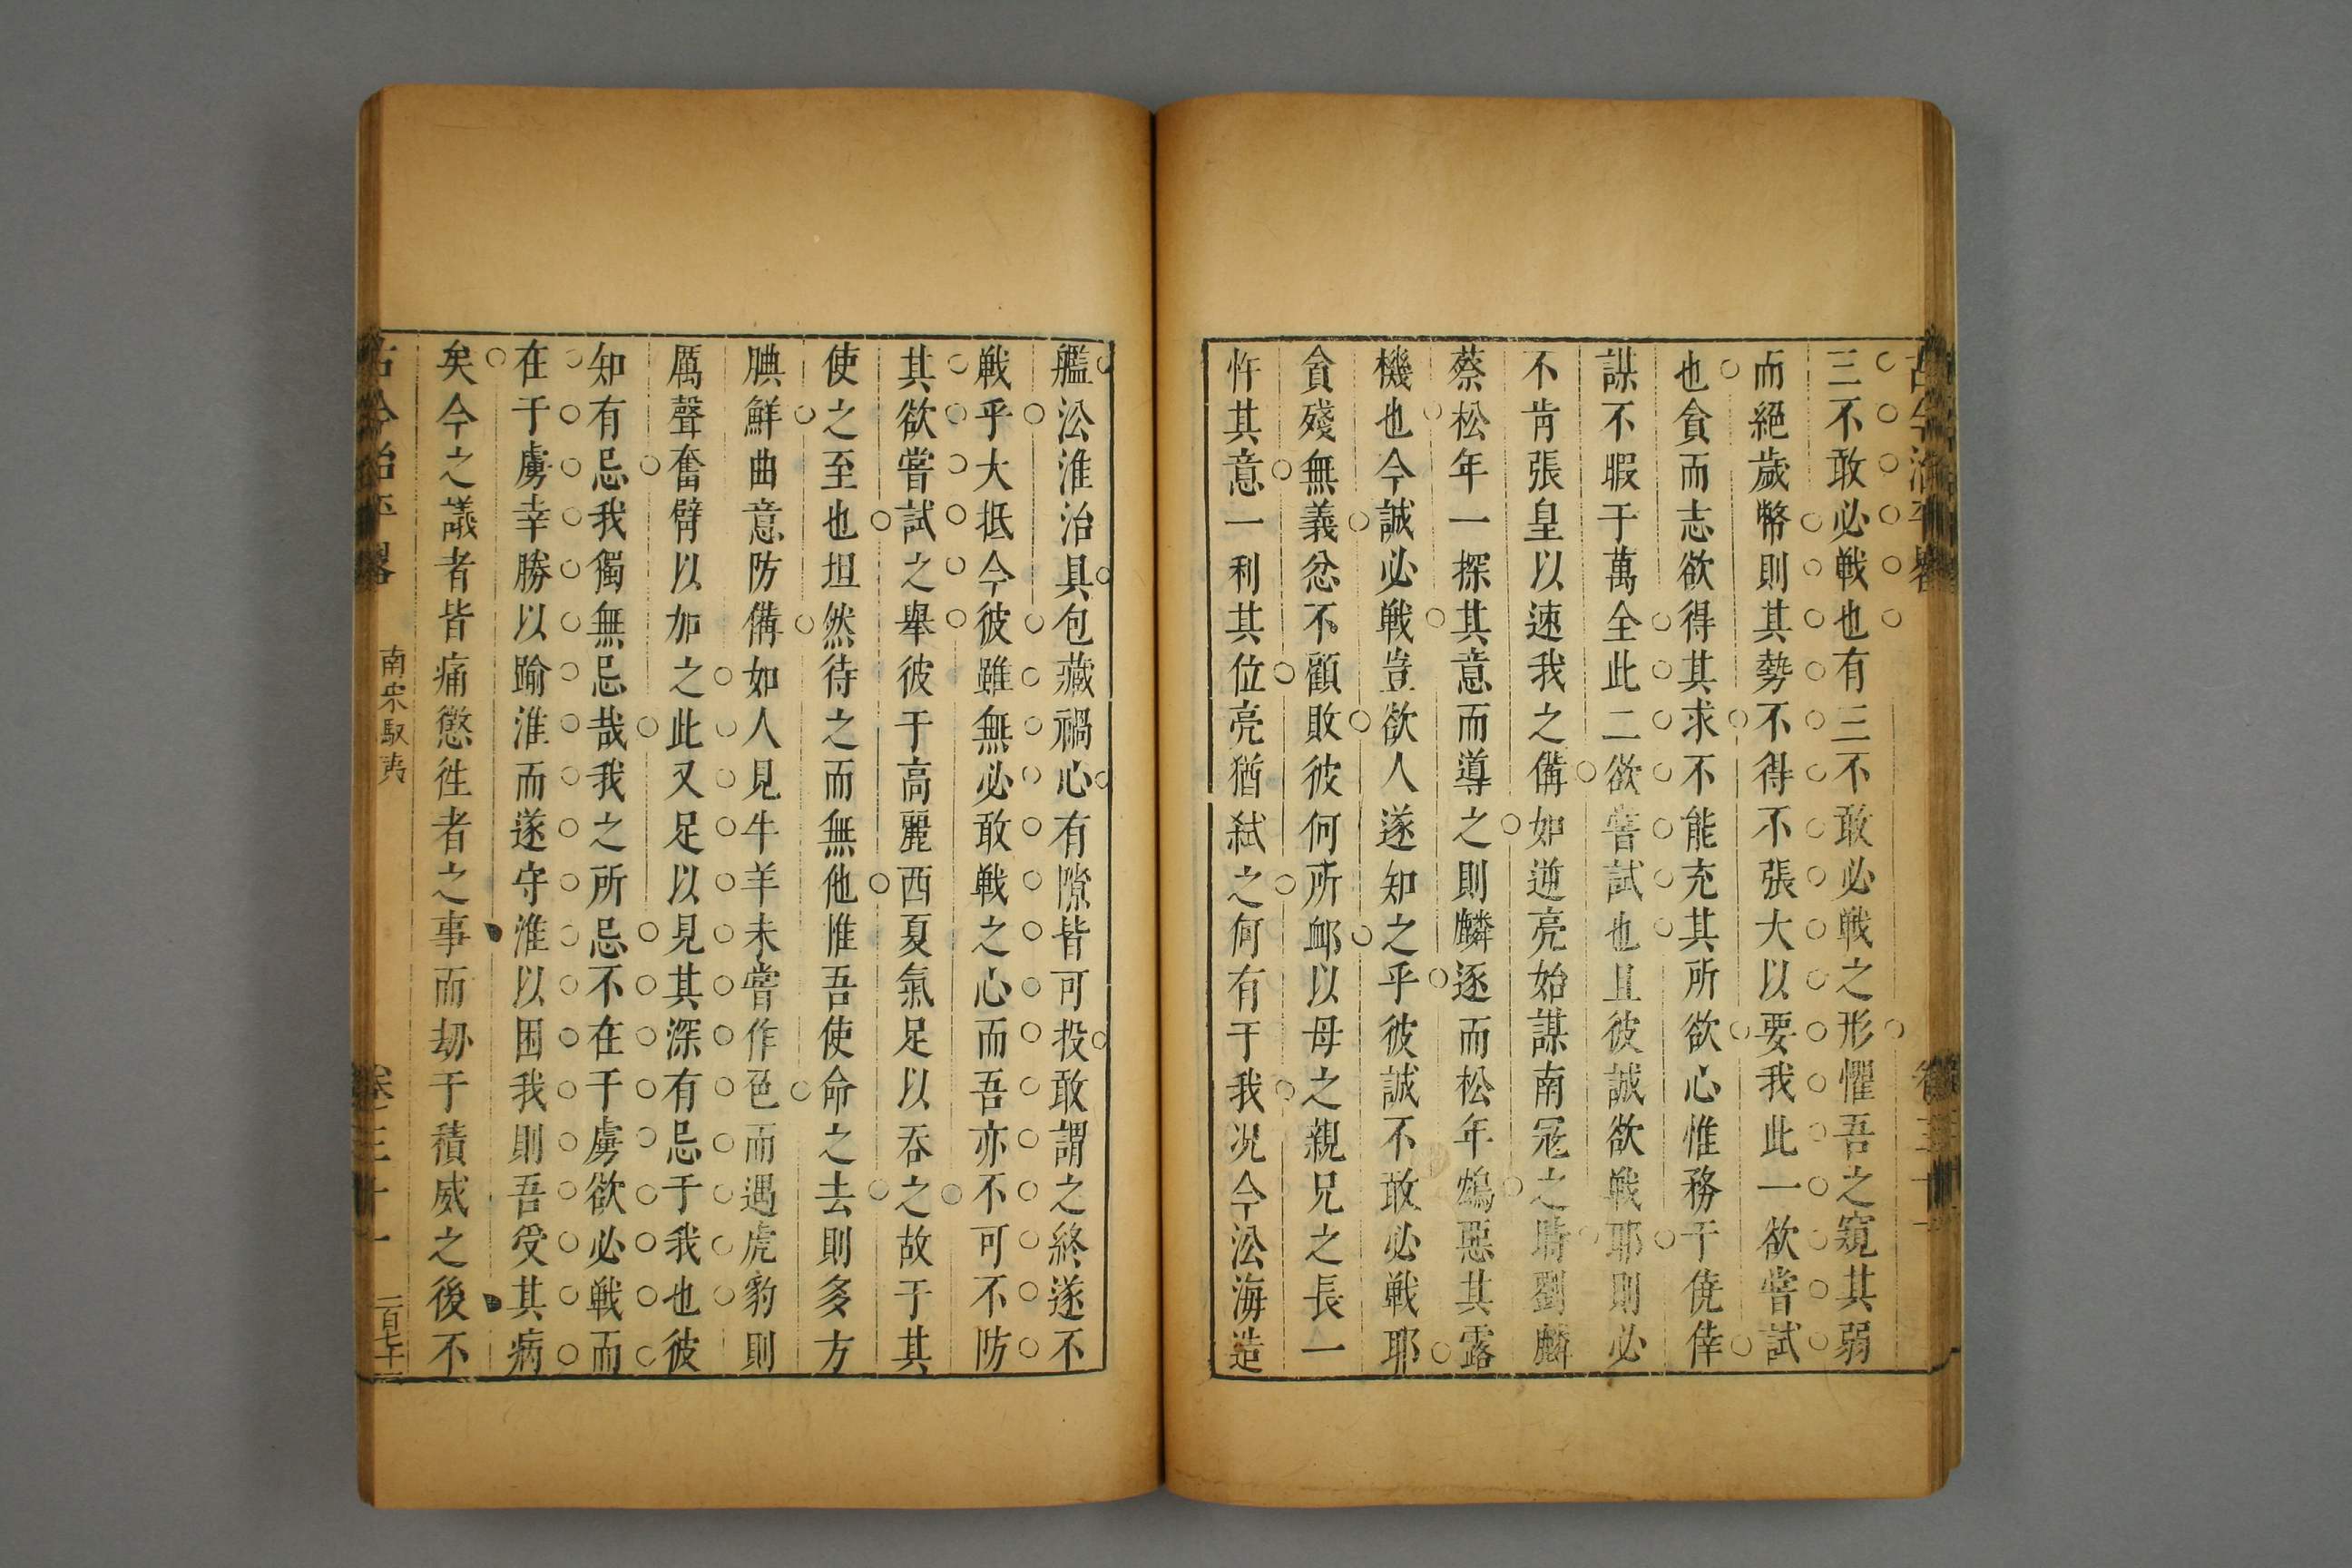 三不敢必戰也有三不敢必戰之形懼吾之窺其弱
而絕歲幣則其勢不得不張大以要我此一欲嘗試
也貪而志欲得其求不能充其所欲心惟務于僥倖
謀不暇于萬全此二欲嘗試也且彼誠欲戰耶則必
不肯張皇以速我之備如逆亮始謀南冦之時劉麟
蔡松年一探其意而導之則麟逐而松年鴆惡其露
機也今誠必戰豈欲人遂知之乎彼誠不敢必戰耶
貪殘無義忿不顧敗彼何所䘏以母之親兄之長一
忤其意一利其位亮猶弒之何有于我况今㳂海造
艦㳂淮治具包藏禍心有隙皆可投敢謂之終遂不
戰乎大抵今彼雖無必敢戰之心而吾亦不可不防
其欲嘗試之舉彼于高麗西夏氣足以吞之故于其
使之至也坦然待之而無他惟吾使命之去則多方
腆鮮曲意防備如人見牛羊未嘗作色而遇虎豹則
厲聲奮臂以加之此又足以見其深有忌于我也彼
知有忌我獨無忌哉我之所忌不在于虜欲必戰而
在于虜幸勝以踰淮而遂守淮以困我則吾受其病
矣今之議者皆痛懲徃者之事而劫于積威之後不
古今治平畧 南宋馭夷 卷三十一